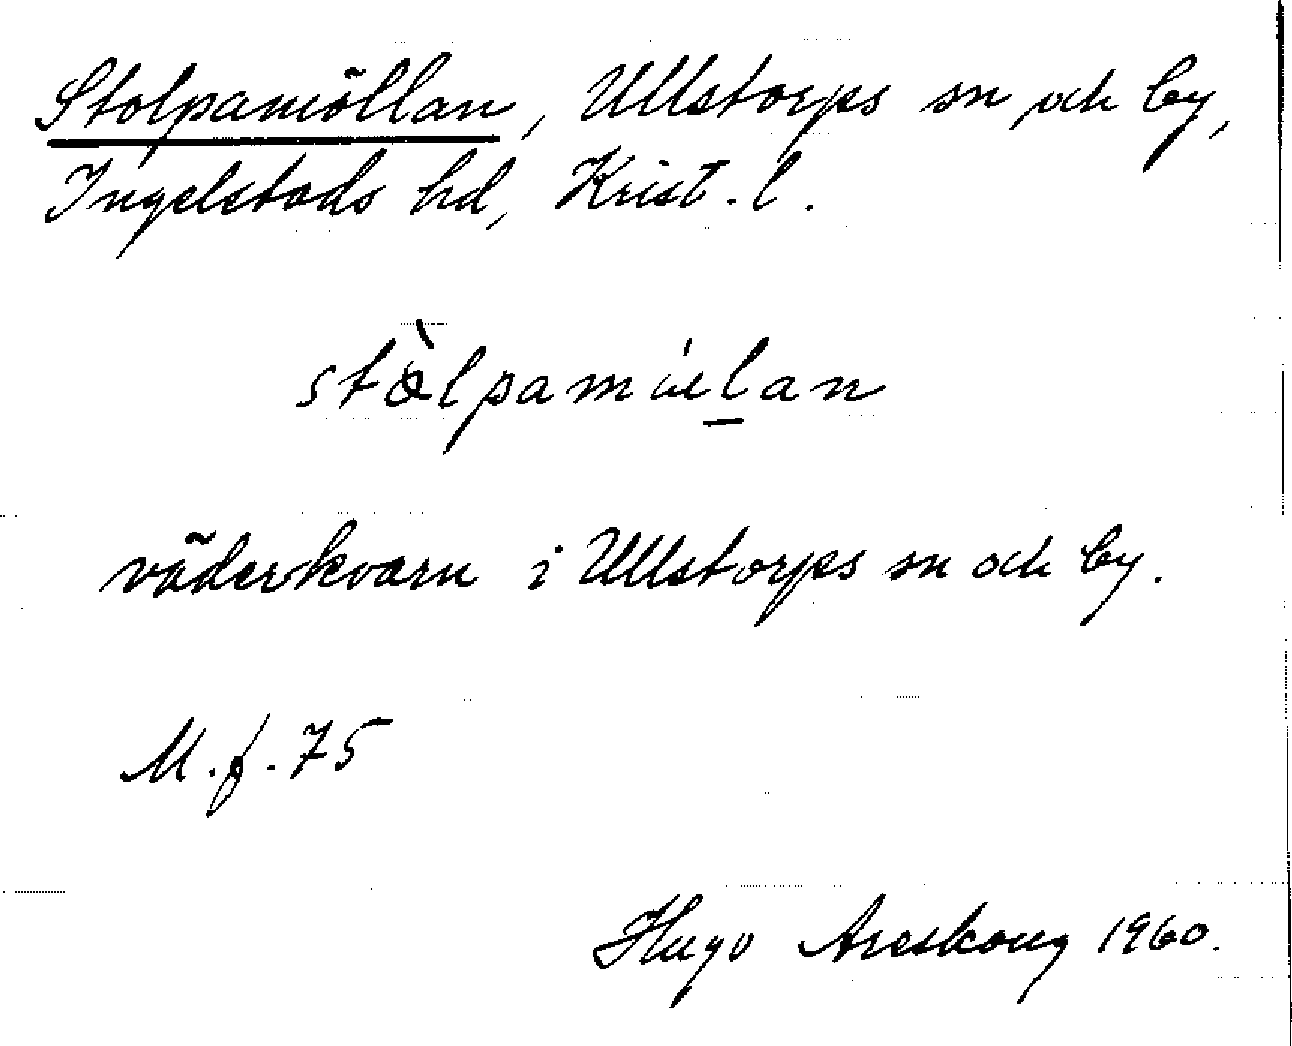 Stolpamöllan, Ullstorps sn och by,
Ingelstads hd, Krist. l.
stòlpamúelan
väderkvarn i Ullstorps sn och by.
M.f. 75
Hugo Areskoug 1960.